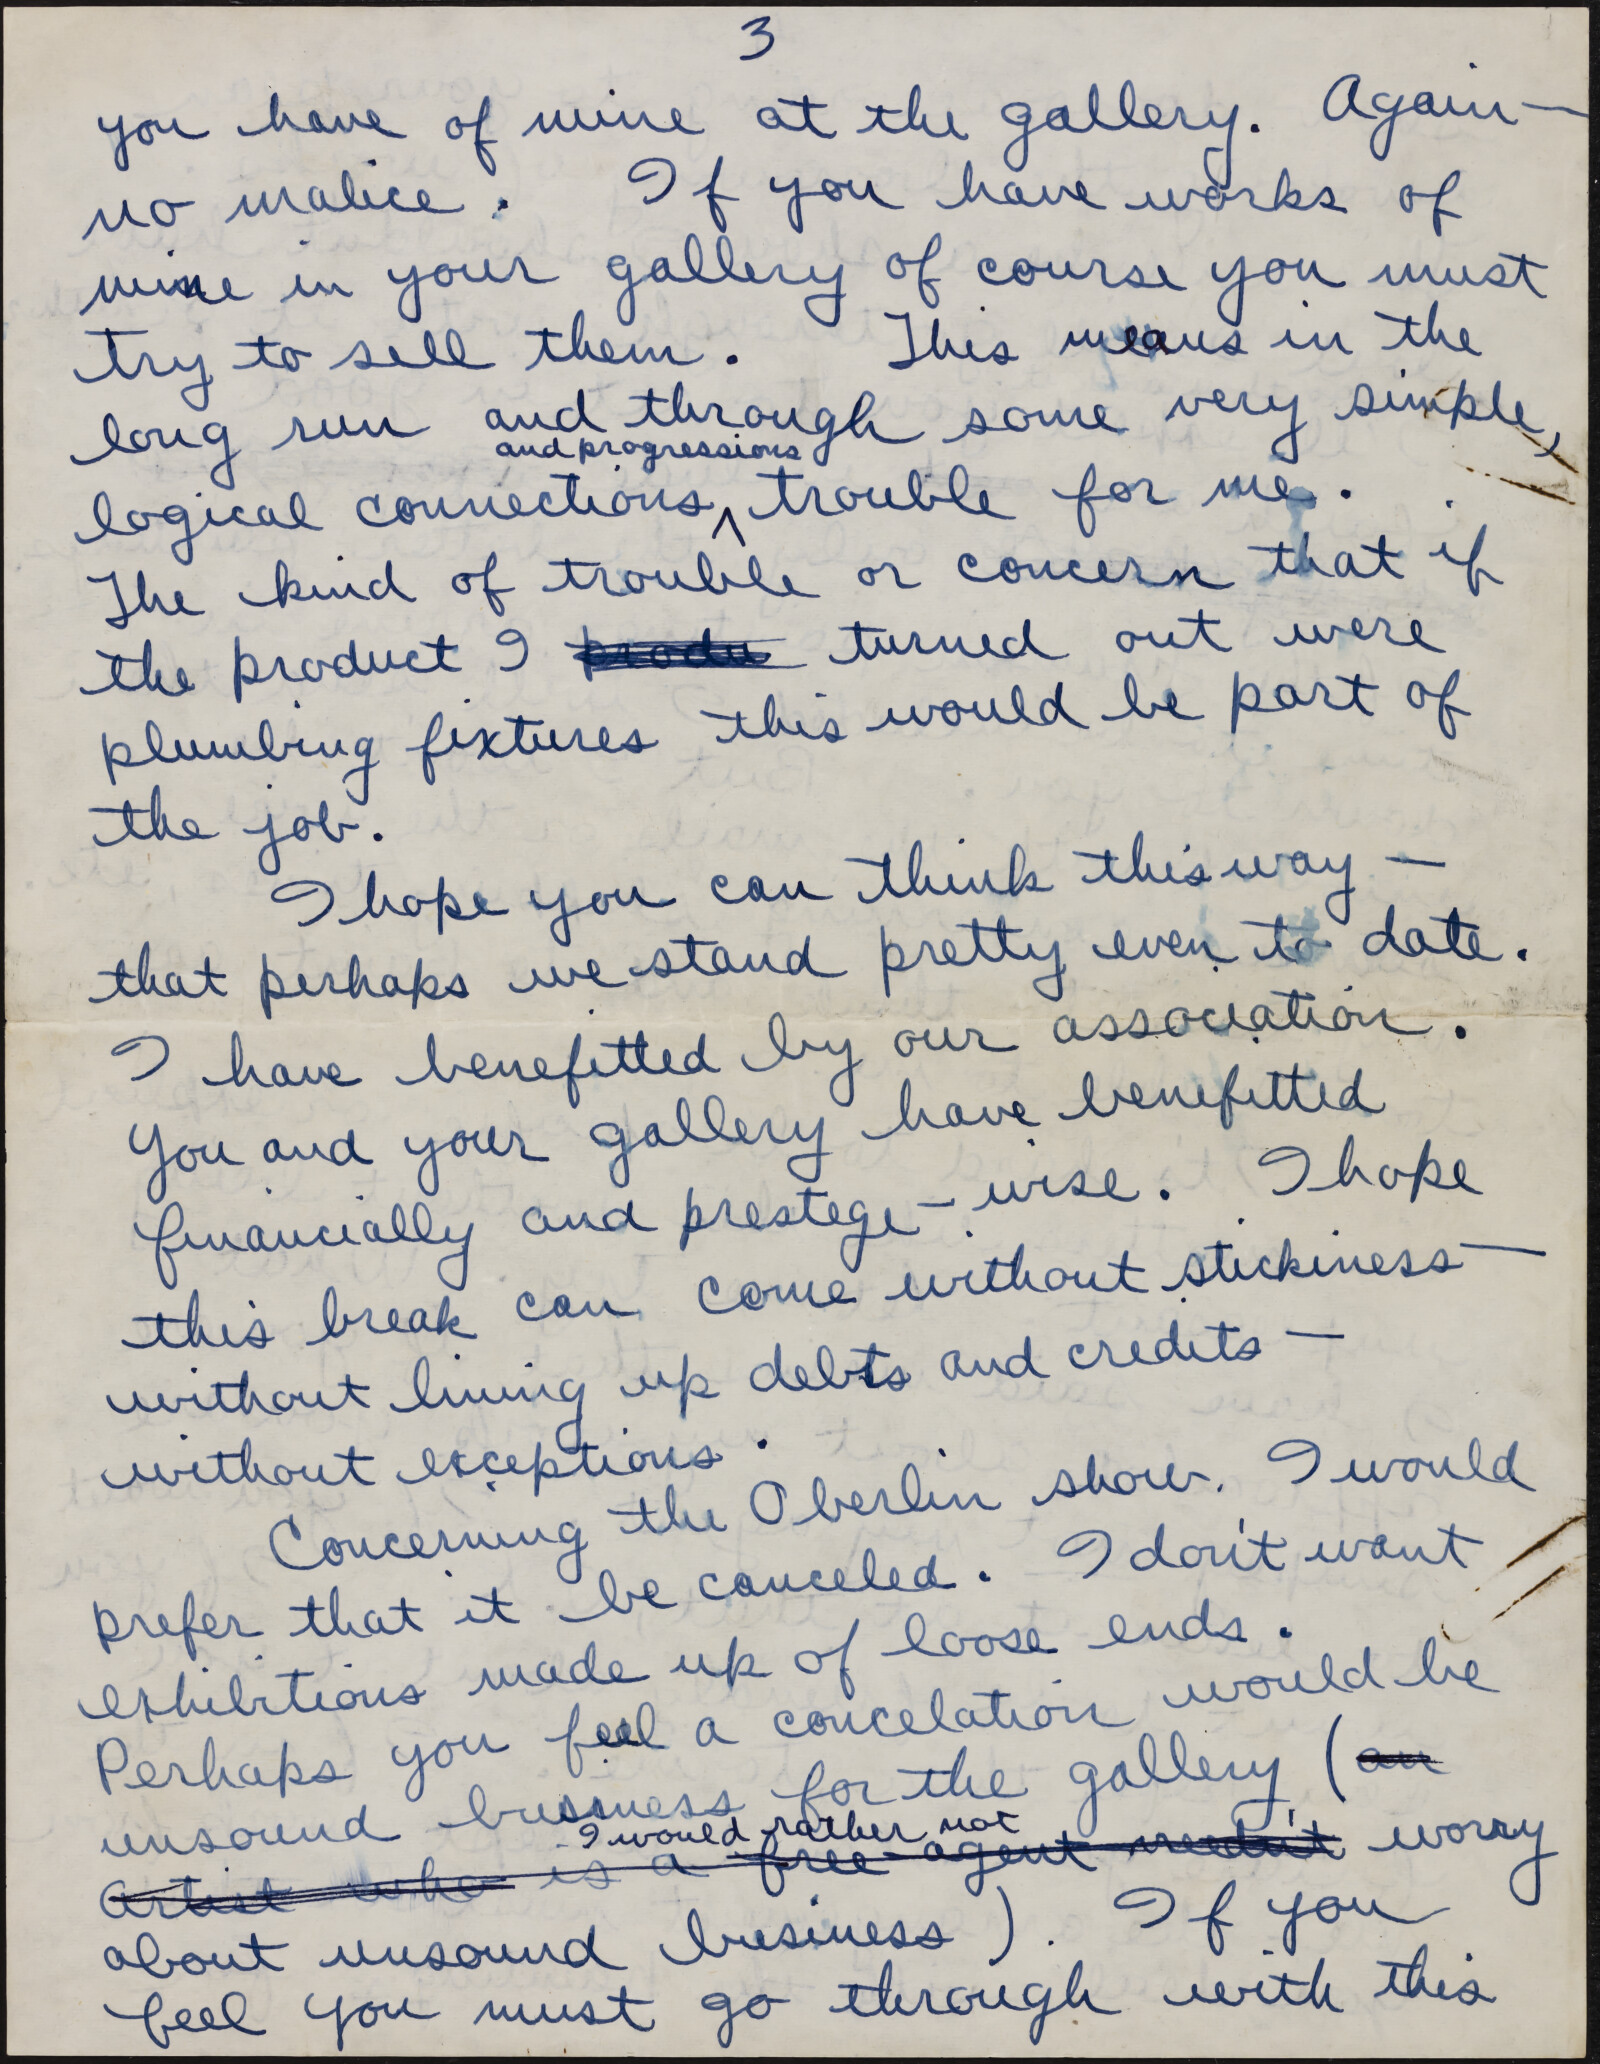 3
you have of mine at the gallery. Again—
no malice. If you have works of
mine in your gallery of course you must
try to sell them. This means in the
long run and through some very simple,
and progressions
logical connections ^ trouble for me.
The kind of trouble or concern that if
the product I produ turned out were
plumbing fixtures this would be part of
the job.
I hope you can think this way —
that perhaps we stand pretty even to date.
I have benefitted by our association.
You and your gallery have benefitted
financially and prestege-wise. I hope
this break can come without stickiness —
without lining up debts and credits —
without exceptions.
Concerning the Oberlin show. I would
prefer that it be canceled. I don't want
exhibitions made up of loose ends.
Perhaps you feel a concelation would be
unsound business for the gallery (an
I would rather not
artist who is a free agent needn't worry
about unsound business). If you
feel you must go through with this